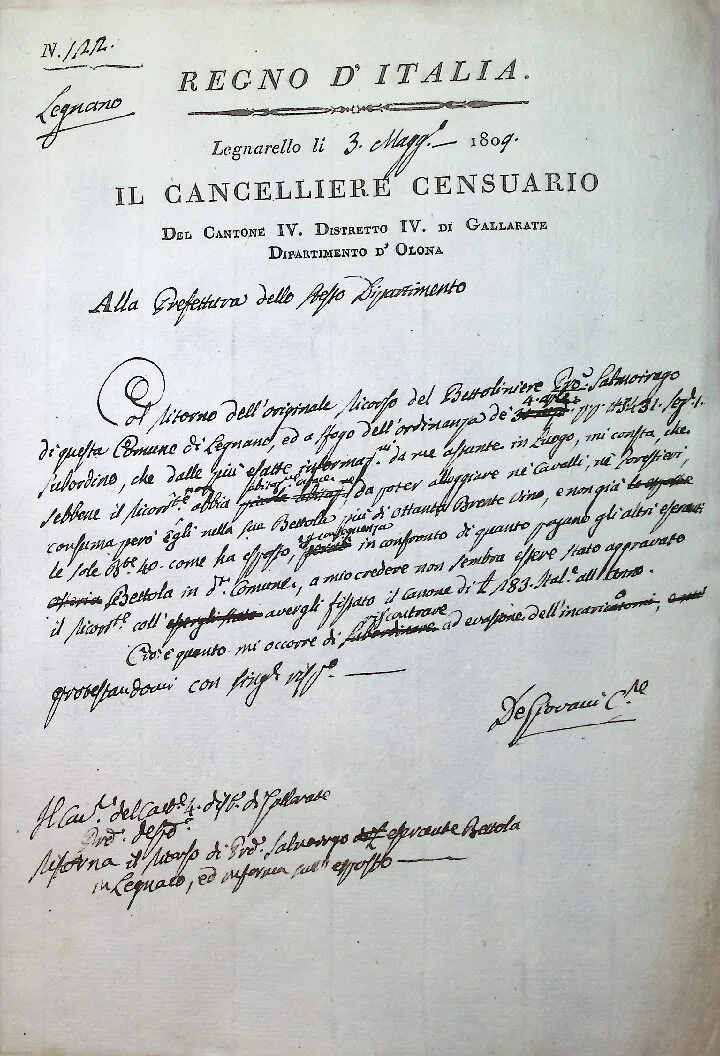 N. 122.
Legnano
REGNO D' ITALIA.
Legnarello li 3. Magg.o 1809.
IL CANCELLIERE CENSUARIO
DEL CANTONE IV. DISTRETTO IV. DI GALLARATE
DIPARTIMENTO D' OLONA
Alla Prefettura dello stesso Dipartimento
Col ritorno dell'originale ricorso del Bettoliniere Salmoirago
di questa Comune di Legnano, ed a sfogo dell'ordinanza de'
subordino, che dalle più esatte informaz.ni da me assunte in Luogo, mi consta, che
sebbene il ricorr.te abbia da poter alloggiare nè Cavalli, nè forestieri,
consuma però Egli nella sua Bettola più di Ottanta Brente vino, e non già
le sole B.te 40. come ha esposto, in confronto di quanto pagano gli altri esercenti
Bettola in d.a Comune, a mio credere non sembra essere stato aggravato
il ricorr.te coll' avergli fissato il Canone di £ 183. Ital.e all'Anno.
Ciò è quanto mi occorre di riscontrare ad evasione dell'incarico,
protestandomi con sing.e
DeGiovanni C.re
Il Can.re del Cant.e 4. dist.o 4. di Gallarate
Ritorna il ricorso di Salmoirago esercente Bettola
in Legnano, ed informa sull'esposto